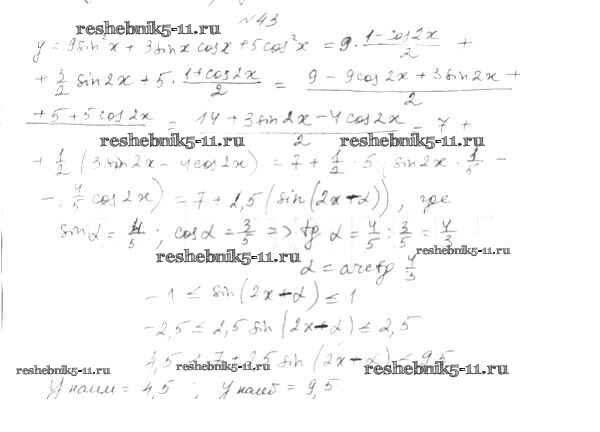 №43
reshebnik5-11.ru
y = 9sin²x + 3sinx cosx + 5cos²x = 9 · (1-cos2x)/2 +
+ 3/2 sin2x + 5 · (1+cos2x)/2 = (9 - 9cos2x + 3sin2x +
+ 5 + 5cos2x)/2 = (14 + 3sin2x - 4cos2x)/2 = 7 +
reshebnik5-11.ru reshebnik5-11.ru
+ 1/2 (3sin2x - 4cos2x) = 7 + 1/2 · 5 sin2x ·
- 4/5 cos2x) = 7 + 2,5 (sin(2x-α)), где
sinα = 4/5 ; cosα = 3/5 => tg α = 4/5 : 3/5 = 4/3
reshebnik5-11.ru reshebnik5-11.ru
α = arctg 4/3
-1 ≤ sin(2x-α) ≤ 1
-2,5 ≤ 2,5 sin(2x-α) ≤ 2,5
4,5 ≤ 7+2,5 sin(2x-α) ≤ 9,5
reshebnik5-11.ru reshebnik5-11.ru reshebnik5-11.ru
y наим = 4,5 ; y наиб = 9,5